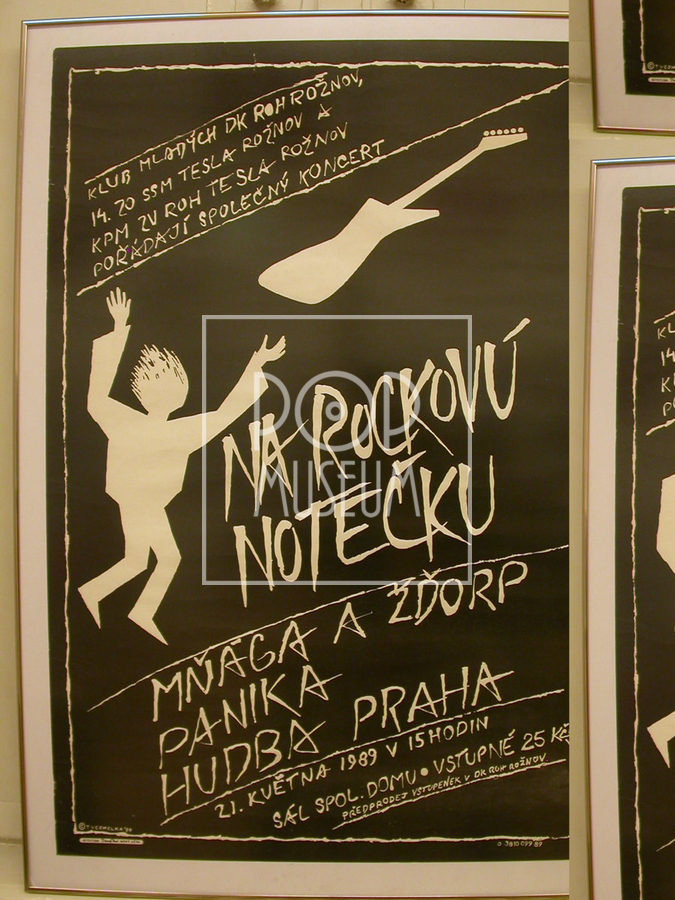 KLUB MLADÝCH DK ROH ROŽNOV,
14. ZO SSM TESLA ROŽNOV A
KPM ZV ROH TESLA ROŽNOV
POŘÁDAJÍ SPOLEČNÝ KONCERT
NA ROCKOVÚ
NOTEČKU
POP
MUSEUM
MŇÁGA A ŽĎORP
PANIKA
HUDBA PRAHA
21. KVĚTNA 1989 V 15 HODIN
SÁL SPOL. DOMU • VSTUPNÉ 25 Kčs
PŘEDPRODEJ VSTUPENEK V DK ROH ROŽNOV
0 3810 099 89